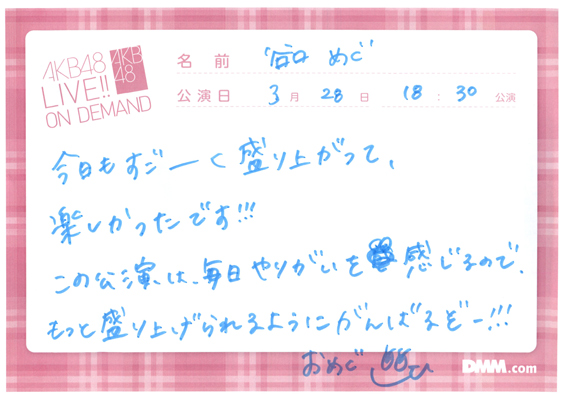 AKB48
LIVE!!
ON DEMAND
AKB
48
名前 谷口 めぐ
公演日 3月 28日 18:30 公演
今日もすごーく盛り上がって、
楽しかったです!!!
この公演は、毎日やりがいを感じるので、
もっと盛り上げられるようにがんばるぞー!!!
おめぐ
DMM.com